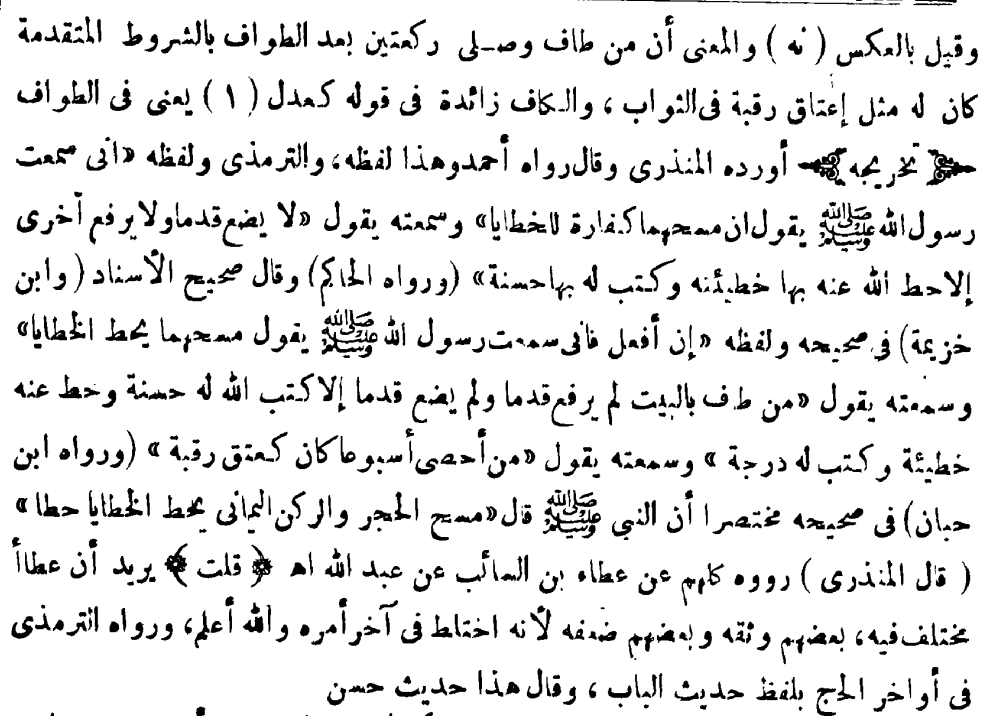 وقيل بالعكس ( نه ) والمعنى أن من طاف وصلى ركعتين بعد الطواف بالشروط المتقدمة
كان له مثل إعتاق رقبة فى الثواب ، والكاف زائدة فى قوله كعدل ( ١ ) يعنى فى الطواف
﴿ تخريجه ﴾ أورده المنذرى وقال رواه أحمد وهذا لفظه، والترمذى ولفظه «انى سمعت
رسول الله ﷺ يقول ان مسحهما كفارة للخطايا» وسمعته يقول «لا يضع قدما ولا يرفع أخرى
إلا حط الله عنه بها خطيئته وكتب له بها حسنة» (ورواه الحاكم) وقال صحيح الأسناد ( وابن
خزيمة) فى صحيحه ولفظه «إن أفعل فانى سمعت رسول الله ﷺ يقول مسحهما يحط الخطايا»
وسمعته يقول «من طاف بالبيت لم يرفع قدما ولم يضع قدما إلا كتب الله له حسنة وحط عنه
خطيئة وكتب له درجة » وسمعته يقول «من أحصى أسبوعا كان كعتق رقبة » (ورواه ابن
حبان) فى صحيحه مختصرا أن النبي ﷺ قال «مسح الحجر والركن اليمانى يحط الخطايا حطا »
( قال المنذرى ) رووه كلهم عن عطاء بن السائب عن عبد الله اهـ ﴿ قلت ﴾ يريد أن عطاأ
مختلف فيه، بعضهم وثقه وبعضهم ضعفه لأنه اختلط فى آخر أمره والله أعلم، ورواه الترمذى
فى أواخر الحج بلفظ حديث الباب ، وقال هذا حديث حسن